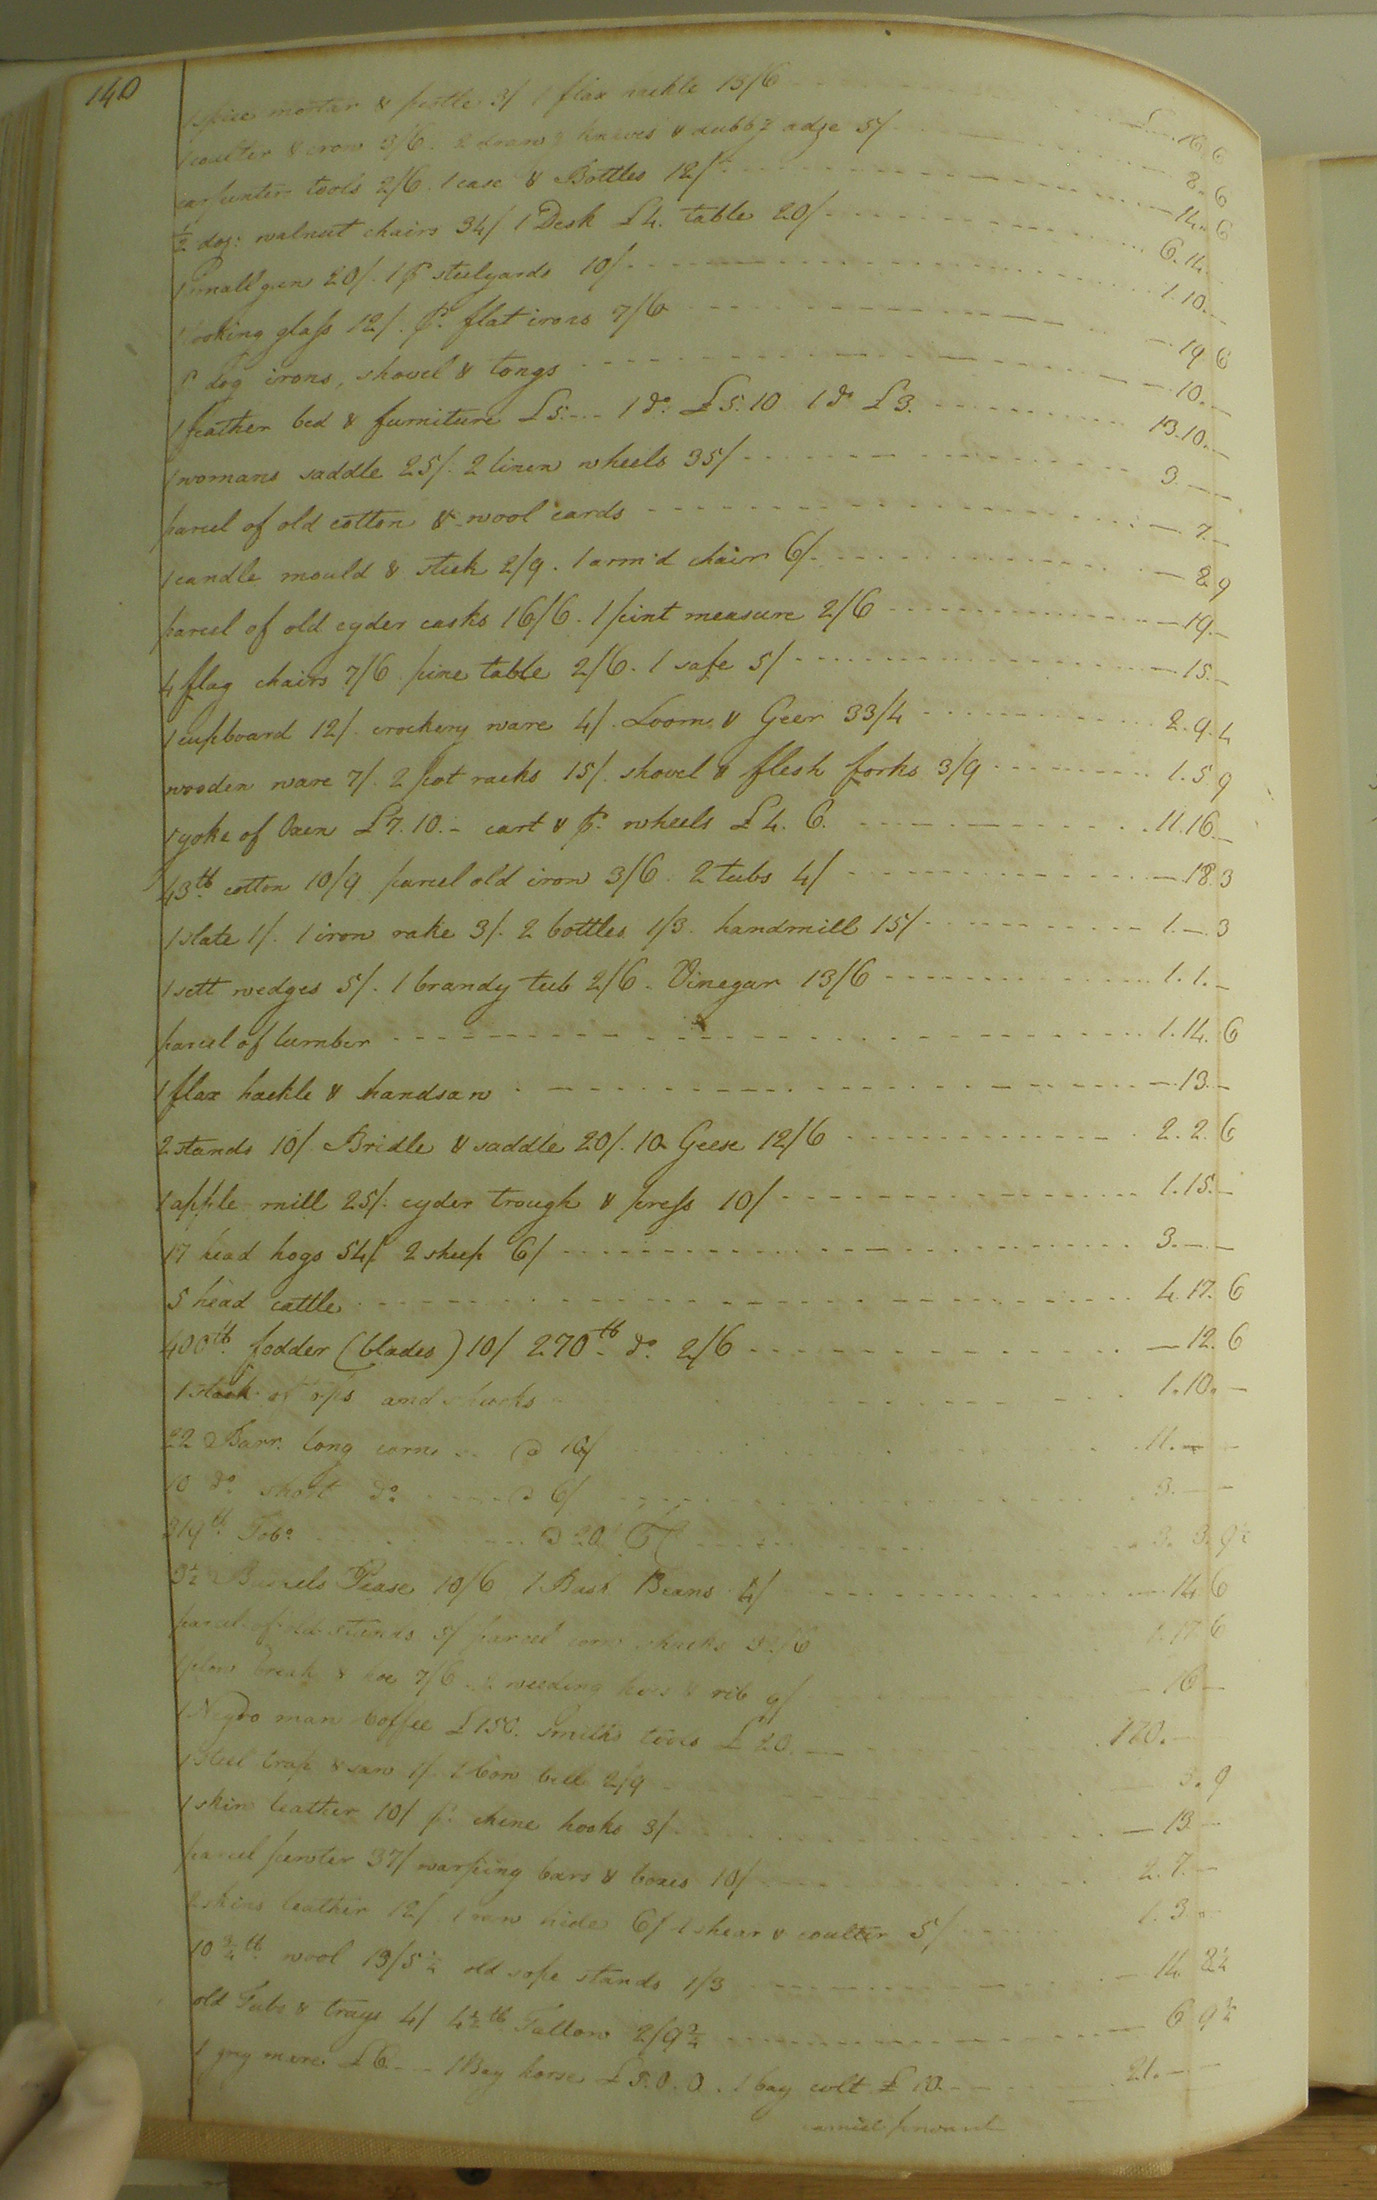 140
1 spice mortar & pestle 3/ 1 flax hackle 13/6 £ .. 16. 6
1 coulter & crow 3/6. 2 drawg knives & dubbg adze 5/ 8. 6
carpenters tools 2/6. 1 case & Bottles 12/ 14. 6
½ doz: walnut chairs 34/ 1 Desk £4. table 20/ 6. 14.
1 small gun 20/. 1 pr steelyards 10/ 1. 10. _
1 looking glass 12/. pr. flat irons 7/6 19. 6
pr dog irons, shovel & tongs 10. _
1 feather bed & furniture £5.__ 1 do. £5.10 1 do £3. 13. 10. _
1 womans saddle 25/. 2 linen wheels 35/ 3. _ _
parcel of old cotton & wool cards 7. _
1 candle mould & stick 2/9. 1 arm'd chair 6/. 8. 9
parcel of old cyder casks 16/6. 1 pint measure 2/6 19. _
4 flag chairs 7/6 pine table 2/6. 1 safe 5/ 15. _
1 cupboard 12/. crockery ware 4/. Loom & Geer 33/4 2. 9. 4
wooden ware 7/. 2 pot racks 15/. shovel & flesh forks 3/9 1. 5. 9
1 yoke of Oxen £7. 10. _ cart & pr. wheels £4. 6. 11. 16. _
43lb. cotton 10/9 parcel old iron 3/6. 2 tubs 4/ 18. 3
1 slate 1/. 1 iron rake 3/. 2 bottles 1/3. handmill 15/ 1. _. 3
1 sett wedges 5/. 1 brandy tub 2/6. Vinegar 13/6 1. 1. _
parcel of lumber 1. 14. 6
1 flax hackle & handsaw 13. _
2 stands 10/. Bridle & saddle 20/. 10 Geese 12/6 2. 2. 6
1 apple mill 25/. cyder trough & press 10/ 1. 15. _
17 head hogs 54/ 2 sheep 6/ 3. _ _
5 head cattle 4. 17. 6
400lb. fodder (blades) 10/ 270lb. do. 2/6 12. 6
1 stack of tops and shucks 1. 10. _
22 Barr. long corn @ 10/ 11. _ _
10 do. short do. @ 6/ 3. _ _
319lb. Tobo @ 20/ 3. 3. 9½
3½ Bushels Pease 10/6 1 Bush Beans 4/ 14. 6
parcel of old stands 5/ parcel corn shucks 1. 17. 6
1 plow & hoe 7/6 2 weeding hoes & rib 9/ 16 _
1 Negro man Coffee £150. Smiths tools £20. __ 170. _
1 steel trap & saw 1/. 1 cow bell 2/9 3. 9
1 skin leather 10/ pr. chine hooks 3/ 13 _
parcel pewter 37/ warping bars & boxes 10/ 2. 7. _
2 skins leather 12/. 1 raw hide 6/ 1 shear & coulter 5/ 1. 3. _
10¾lb. wool 13/5¼ old sope stands 1/3 14 8¼
old Tubs & trays 4/ 4½lb Tallow 2/9¾ 6 9¾
1 grey mare £6. __ 1 Bay horse £5. 0. 0. 1 bay colt £10. 21. _
carried forward